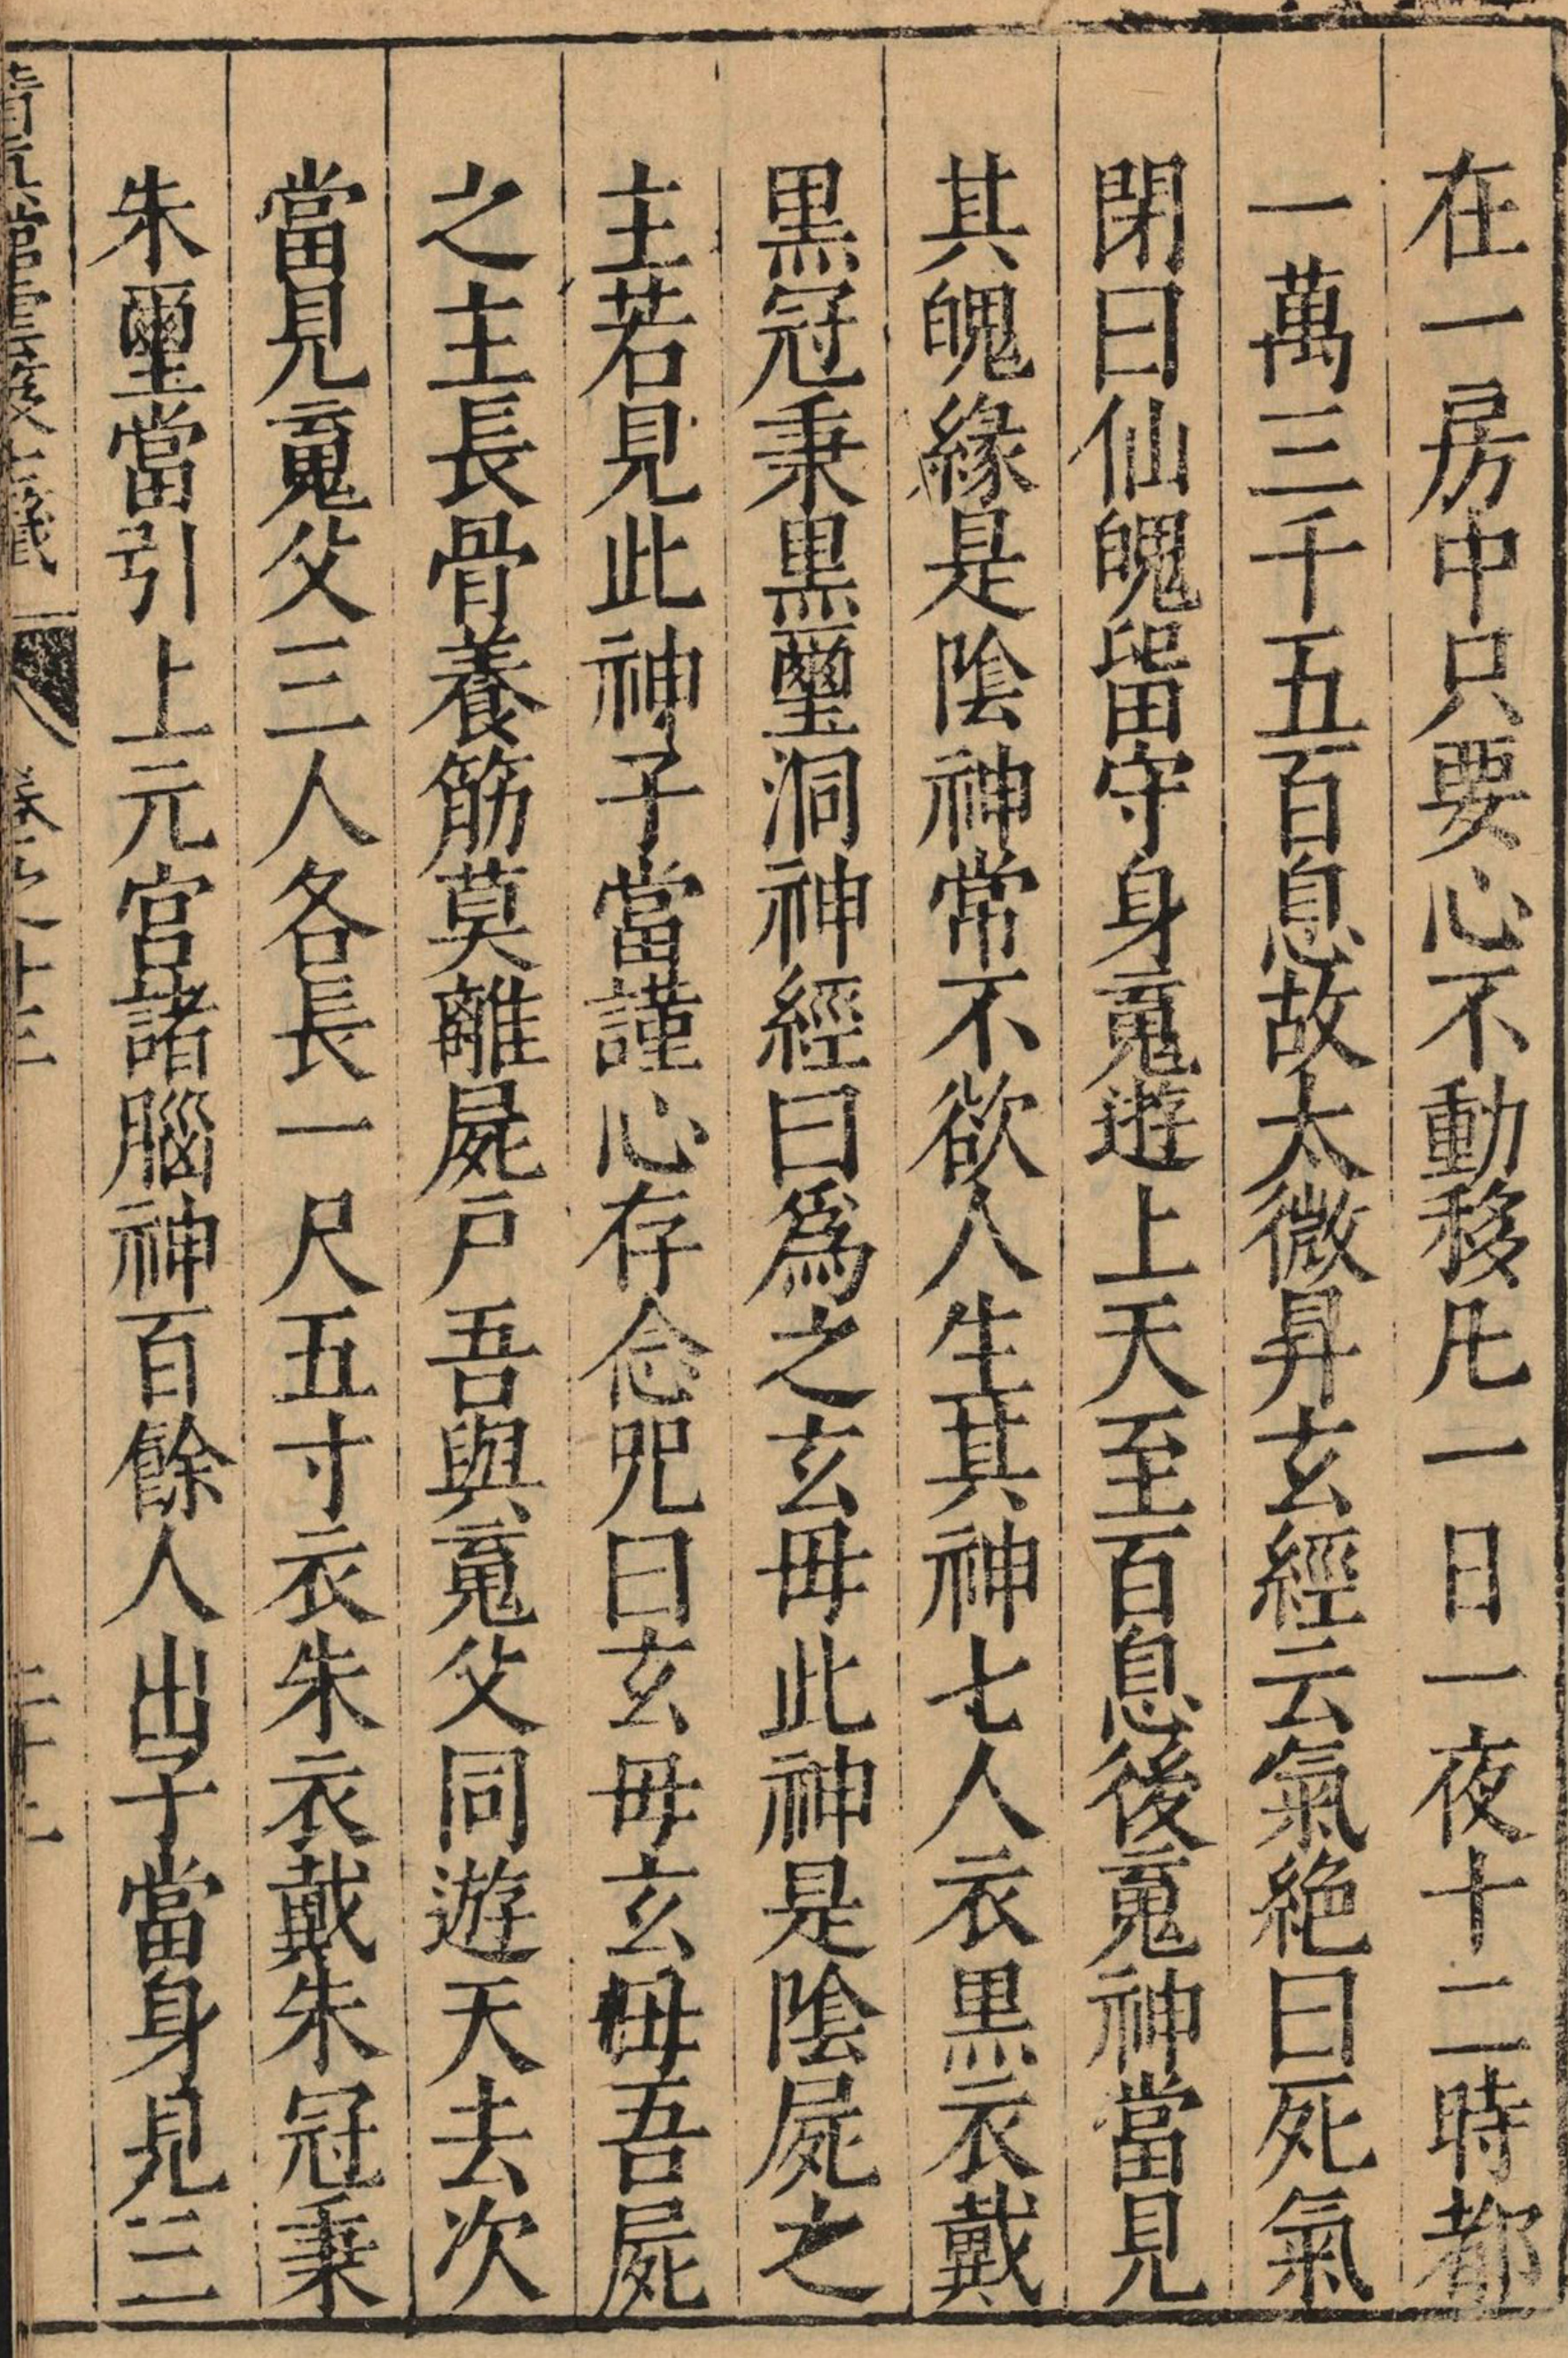 在一房中只要心不動移凡一日一夜十二時都
一萬三千五百息故太微昇玄經云氣絶曰死氣
閉曰仙魄留守身䰟遊上天至百息後䰟神當見
其魄緣是陰神常不欲人生其神七人衣黑衣戴
黑冠秉黑璽洞神經曰爲之玄母此神是陰屍之
主若見此神子當謹心存念咒曰玄母玄母吾屍
之主長骨養筋莫離屍戶吾與䰟父同遊天去次
當見䰟父三人各長一尺五寸衣朱衣戴朱冠秉
朱璽當引上元宮諸腦神百餘人出子當身見三
卷之十三